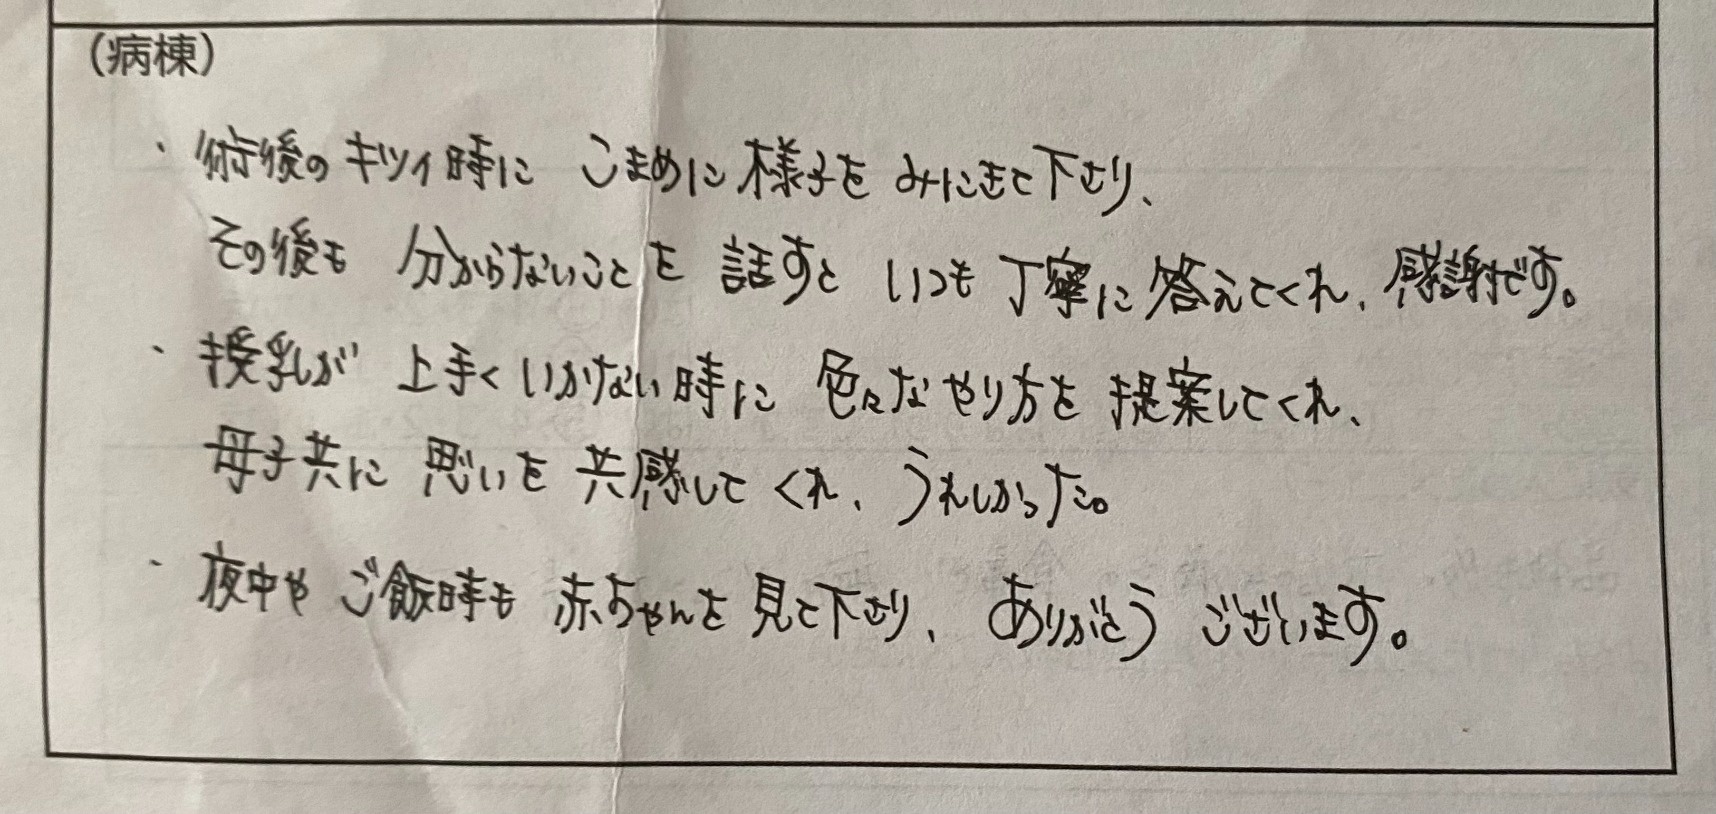 (病棟)
・術後のキツイ時に こまめに様子を みにきて下さり、
その後も 分からないことを 話すと いつも 丁寧に 答えてくれ、感謝です。
・授乳が 上手くいかない時に 色々なやり方を 提案してくれ、
母子共に 思いを 共感してくれ、うれしかった。
・夜中や ご飯時も 赤ちゃんを 見て下さり、ありがとう ございます。